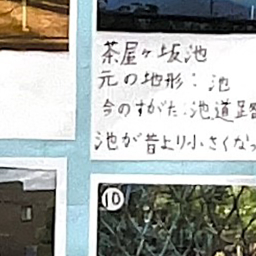 茶屋ヶ坂池
元の地形：池
今のすがた：池、道
池が昔より小さくなっ
⑩